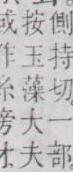 側持切一部
按玉藻大夫
或作糸旁才